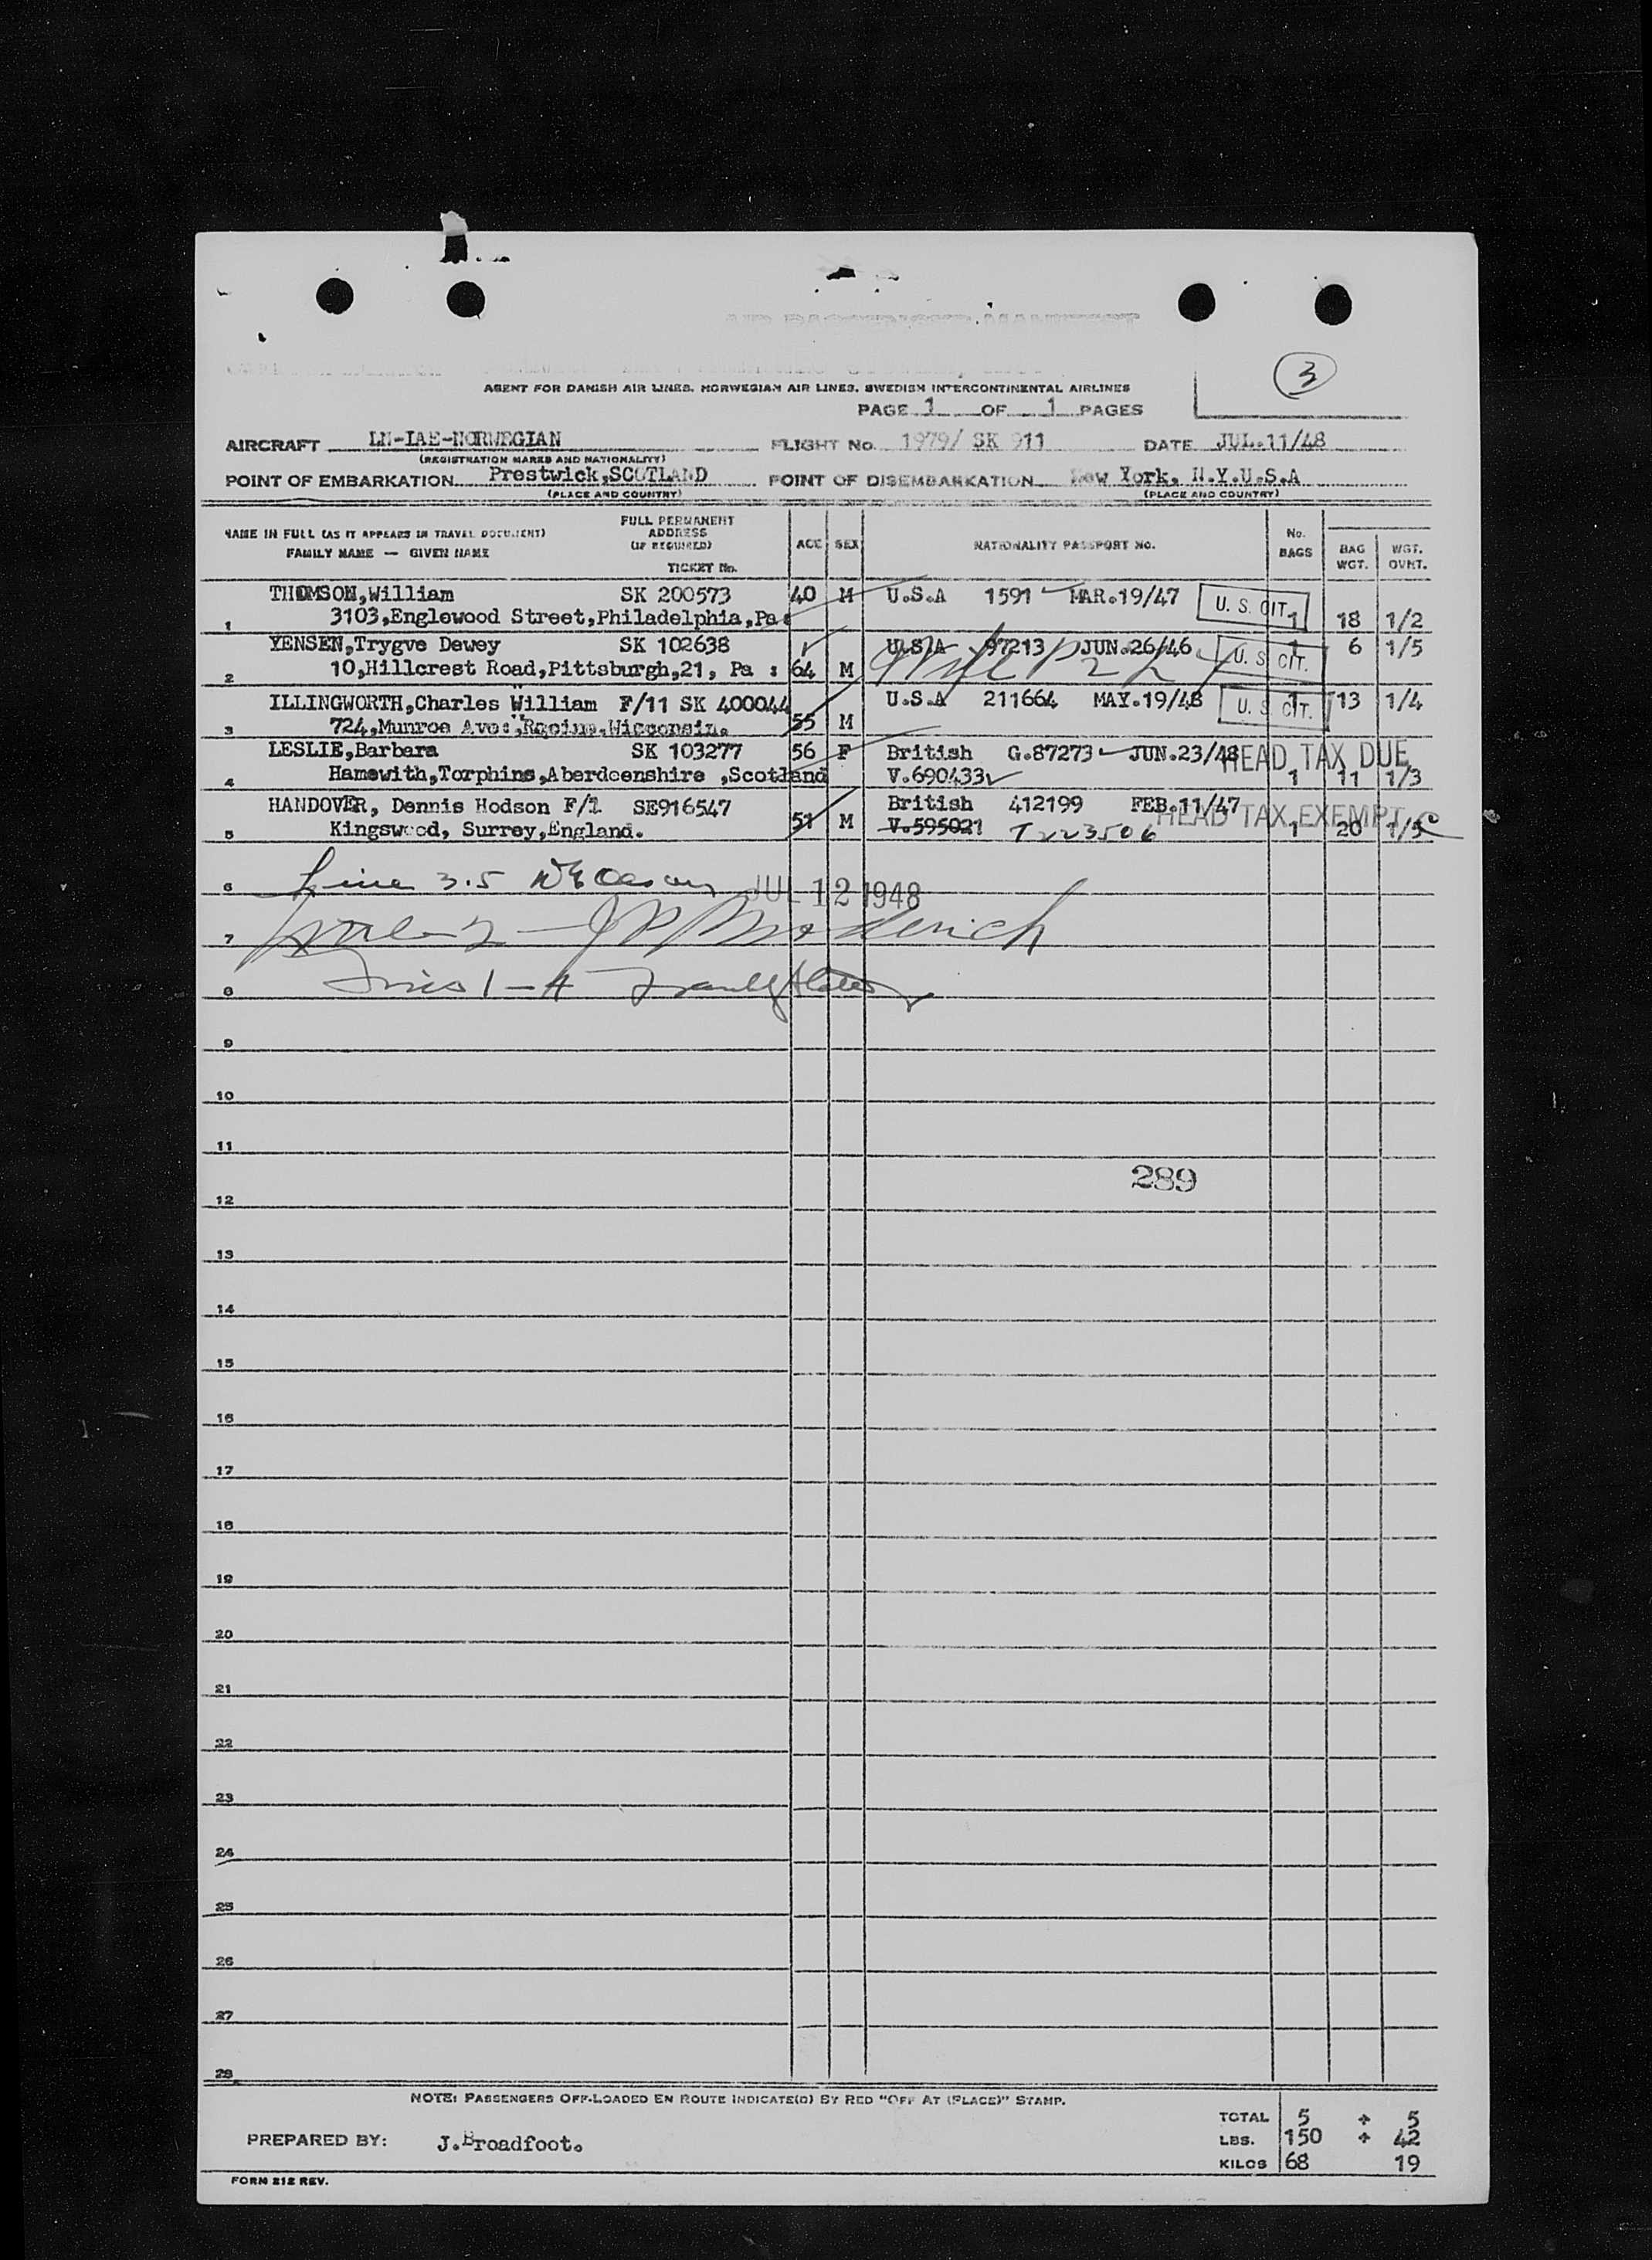 3
AGENT FOR DANISH AIR LINES, NORWEGIAN AIR LINES, SWEDISH INTERCONTINENTAL AIRLINES
PAGE 1 OF 1 PAGES
AIRCRAFT LN-IAE-NORWEGIAN FLIGHT No. 1979/ SK 911 DATE JUL.11/48
(REGISTRATION MARKS AND NATIONALITY)
POINT OF EMBARKATION Prestwick,SCOTLAND POINT OF DISEMBARKATION New York, N.Y.U.S.A
(PLACE AND COUNTRY) (PLACE AND COUNTRY)
NAME IN FULL (AS IT APPEARS IN TRAVEL DOCUMENT) FAMILY NAME — GIVEN NAME FULL PERMANENT ADDRESS (IF REQUIRED) TICKET No. AGE SEX NATIONALITY PASSPORT NO. No. BAGS BAG WGT. WGT. OVHT.
THOMSON,William SK 200573 40 M U.S.A 1591 MAR.19/47 U. S. CIT.
1 3103,Englewood Street,Philadelphia,Pa: 1 18 1/2
YENSEN,Trygve Dewey SK 102638 U.S.A 97213 JUN.26/46 U. S. CIT. 1 6 1/5
2 10,Hillcrest Road,Pittsburgh,21, Pa : 64 M
ILLINGWORTH,Charles William F/11 SK 400044 U.S.A 211664 MAY.19/48 U. S. CIT. 1 13 1/4
3 724,Munroe Ave:,Racine,Wisconsin. 55 M
LESLIE,Barbara SK 103277 56 F British G.87273 JUN.23/48 HEAD TAX DUE
4 Hamewith,Torphins,Aberdeenshire ,Scotland V.690433 1 11 1/3
HANDOVER, Dennis Hodson F/1 SE916547 British 412199 FEB.11/47 HEAD TAX EXEMPT
5 Kingswood, Surrey,England. 51 M V.595021 T223506 1 20 1/5
6 Line 3.5 JUL 12 1948
7
8 Lines 1-4
9
10
11
289
12
13
14
15
16
17
18
19
20
21
22
23
24
25
26
27
28
NOTE: PASSENGERS OFF-LOADED EN ROUTE INDICATE(D) BY RED "OFF AT (PLACE)" STAMP.
TOTAL 5 + 5
PREPARED BY: J.Broadfoot. LBS. 150 + 42
KILOS 68 19
FORM 212 REV.